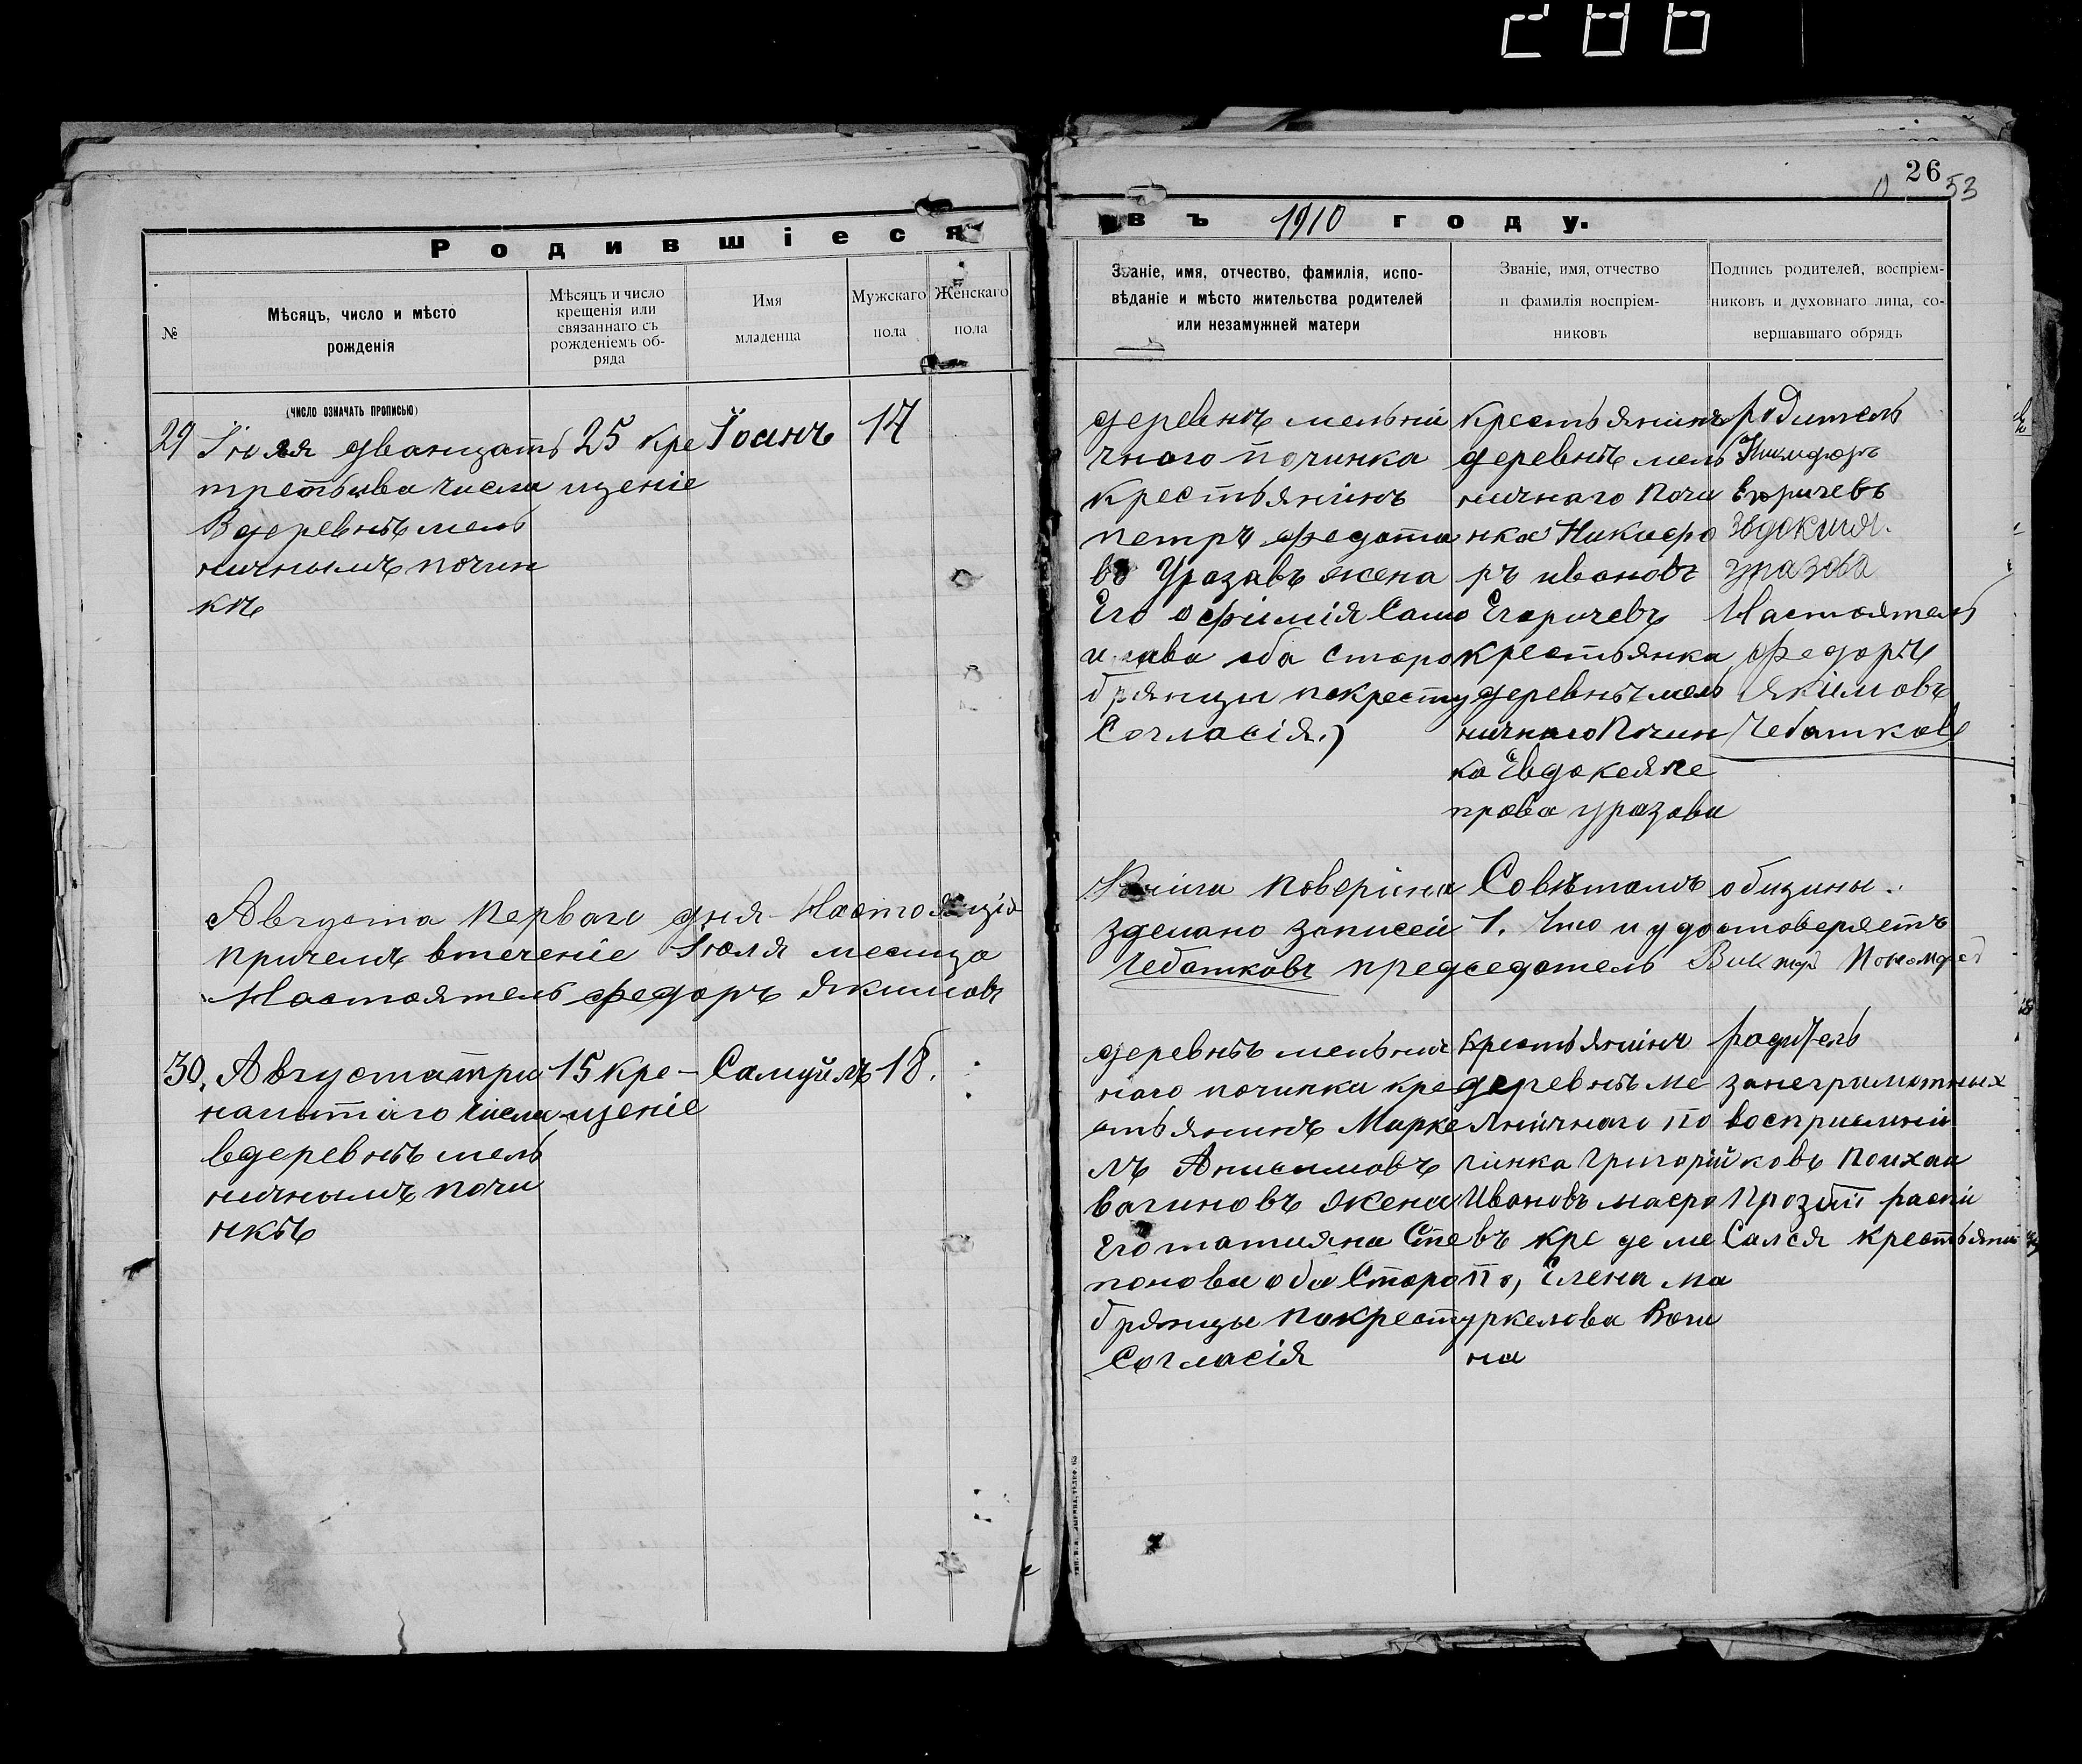 286
26
53
Родившіеся
въ 1910 году.
№
Мѣсяцъ, число и мѣсто
рожденія
Мѣсяцъ и число
крещенія или
связаннаго съ
рожденіемъ об-
ряда
Имя
младенца
Мужскаго
пола
Женскаго
пола
Званіе, имя, отчество, фамилія, испо-
вѣданіе и мѣсто жительства родителей
или незамужней матери
Званіе, имя, отчество
и фамилія воспріем-
никовъ
Подпись родителей, воспріем-
никовъ и духовнаго лица, со-
вершавшаго обрядъ
(число означать прописью)
29
Іюля дванцать
третьива числа
В деревнѣ мель
ничнымъ почин
кѣ
25 кре
щеніе
Іоанъ
17
деревнѣ мельни
чнаго починка
крестьянинъ
петръ федато
въ Уразавъ жена
Его офимія Само
лава оба старо
брянцы покресту
Согласія.)
крестьянинъ
деревнѣ мель
ничнаго Почи
нка Никифо
ръ ивановъ
Егоричевъ
крестьянка
деревнѣ мель
ничнаго Почин
ка Евдокея пе
трова уразова
родитель
Евдокия
уразова
Настоятель
Федоръ
Якімовъ
Чебатковъ
Августа Перваго дня Настоящія
причемъ втеченіе Іюля месица
Настоятель Федоръ Якимовъ
Книга поверина Совѣтамъ общины.
зделано записей 1. Что и удостоверяетъ
Чебатковъ председатель Виктор
30.
Августа три
нацатаго числа
в деревнѣ мель
ничнымъ почи
нкѣ
15 кре-
щеніе
Самуйлъ
18.
деревнѣ мельнич
наго починка кре
стьянинъ Марке
лъ Анисимовъ
вагиновъ жена
Его татияна Сте
понова оба Старо
брянцы покресту
Согласія
крестьянинъ
деревнѣ ме
льничнаго по
чинка Григорій
Ивановъ масро
въ кре де ме
по, Елена ма
ркелова Ваги
на
радитель
занеграмотных
восприемни
ковъ Поихаи
Прозби распи
Салея крестьянин